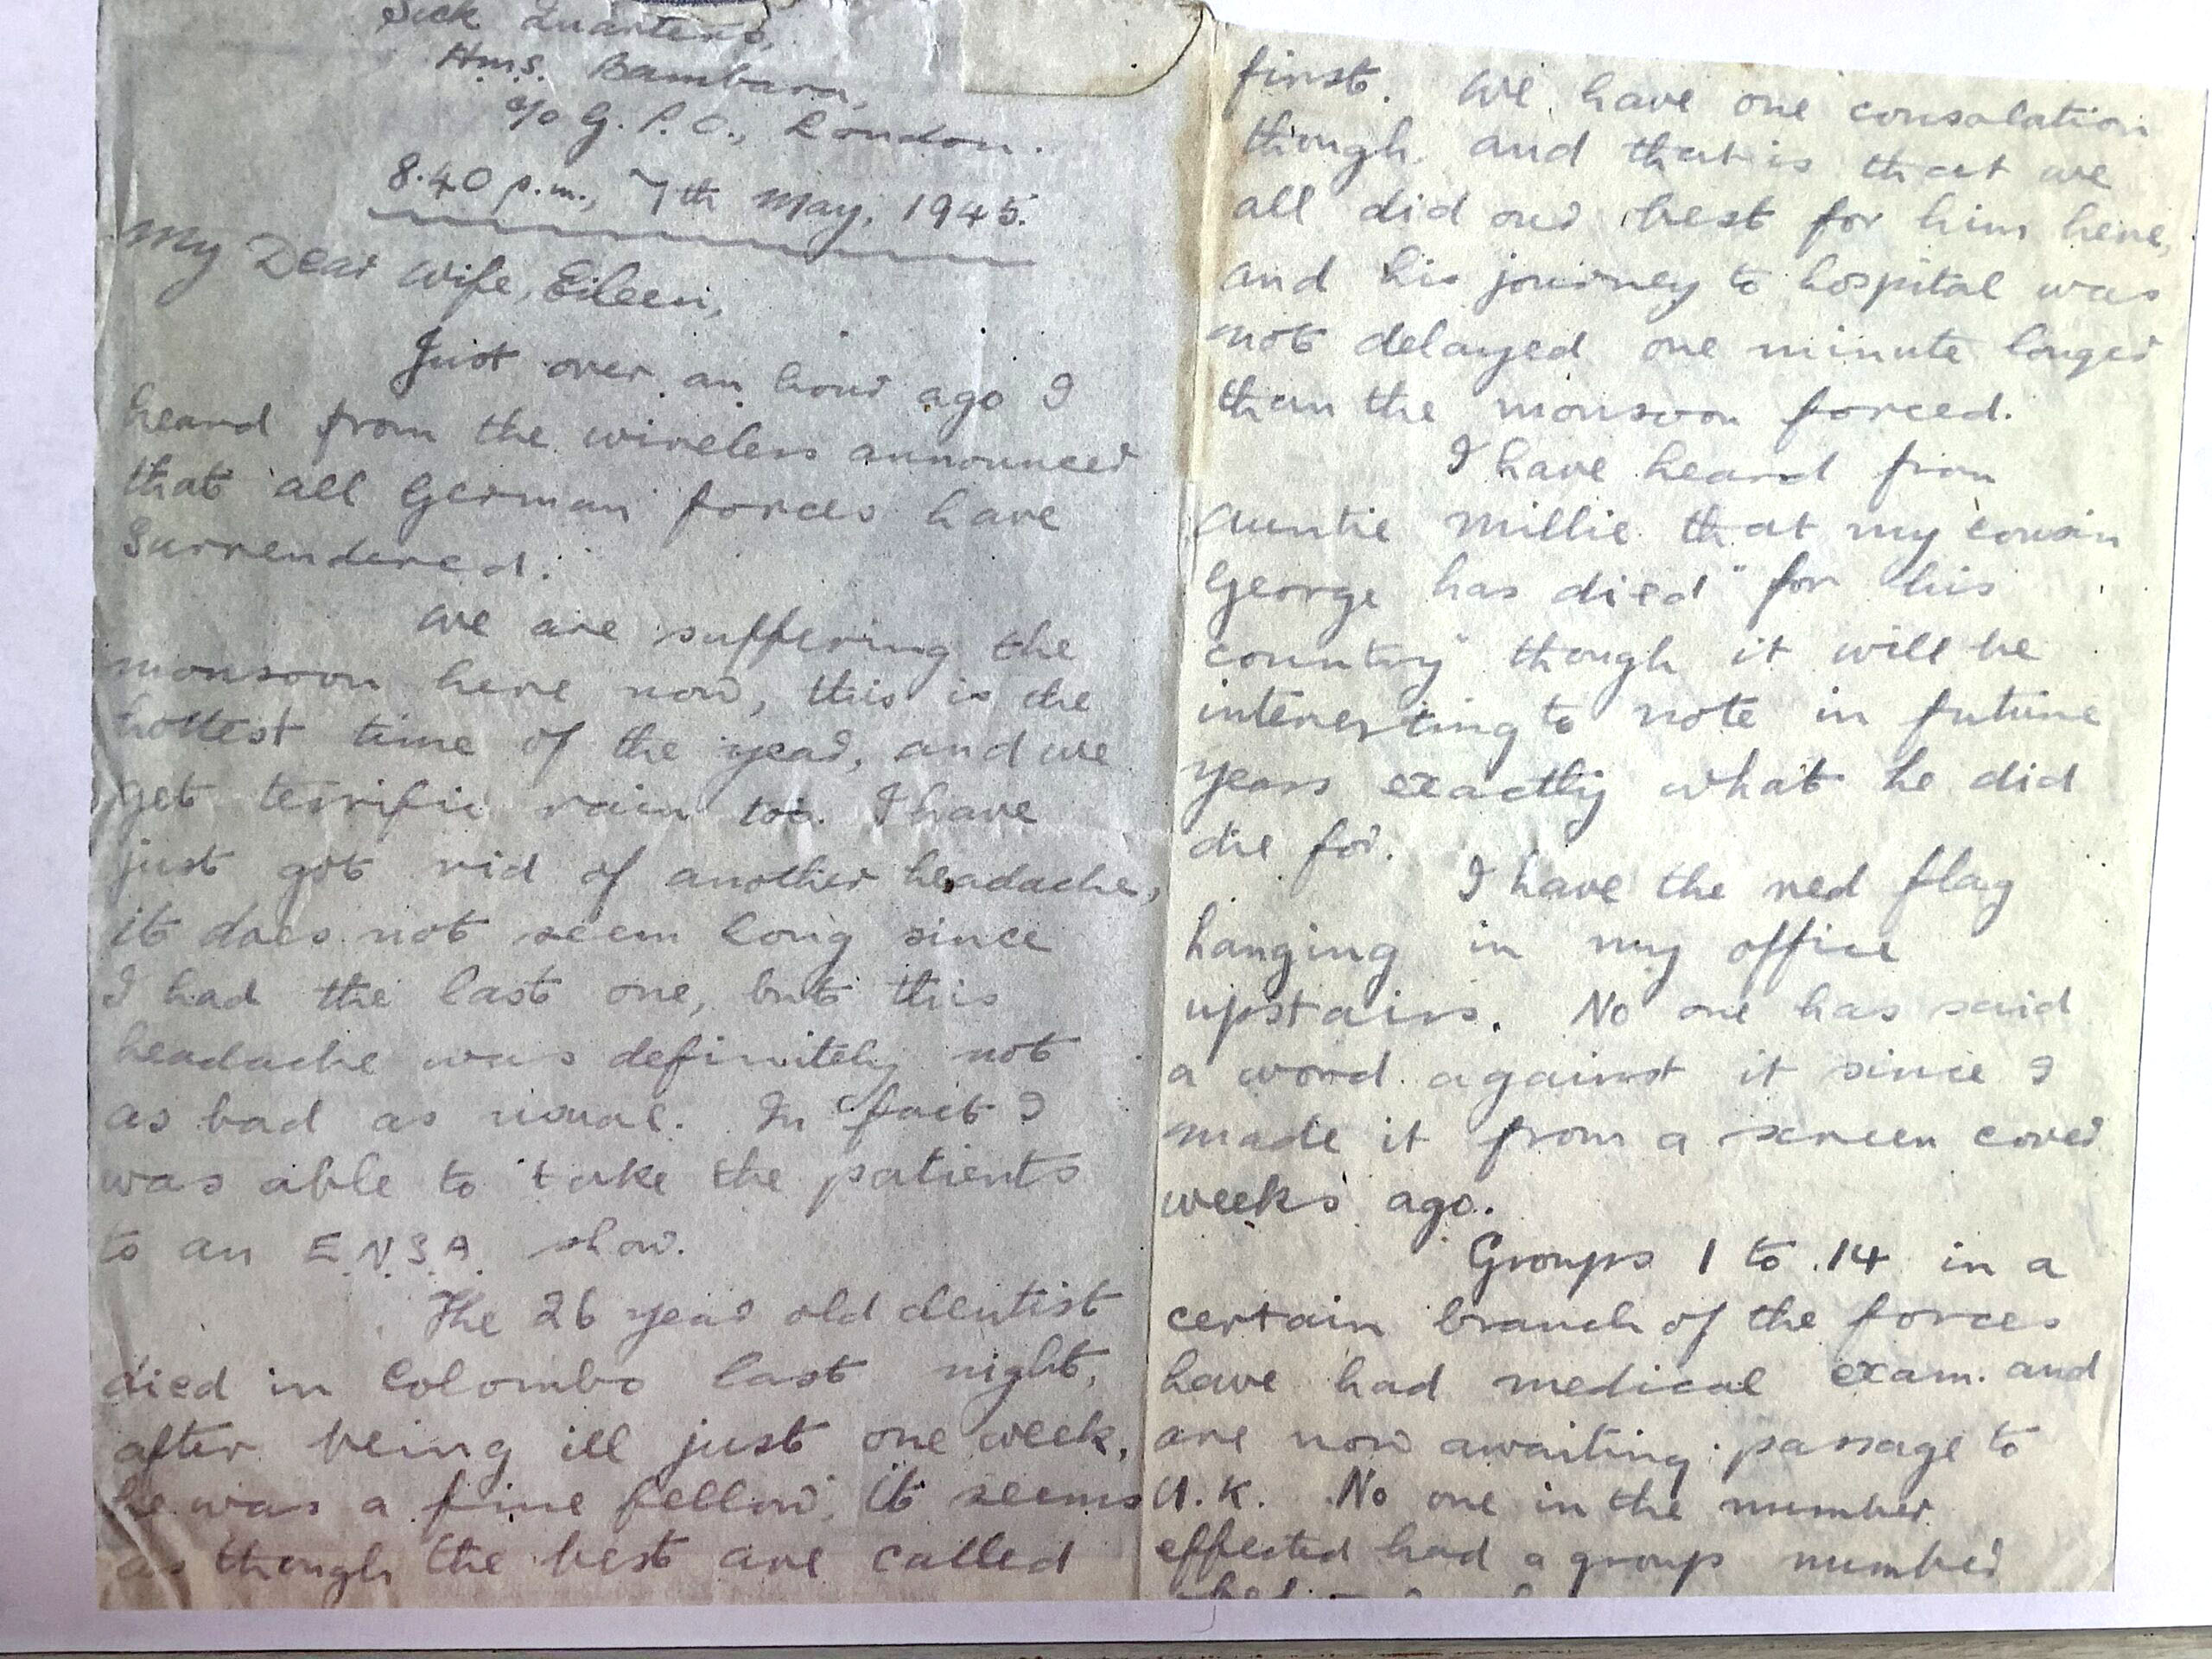 Sick Quarters,
H.M.S. Bambara,
c/o G.P.O., London.
8.40 p.m., 7th May, 1945.
My Dear Wife, Eileen,
Just over an hour ago I
heard from the wireless announcer
that all German forces have
surrendered.
We are suffering the
monsoon here now, this is the
hottest time of the year, and we
get terrific rain too. I have
just got rid of another headache,
it does not seem long since
I had the last one, but this
headache was definitely not
as bad as usual. In fact I
was able to take the patients
to an E.N.S.A. show.
The 26 year old dentist
died in Colombo last night,
after being ill just one week,
he was a fine fellow, it seems
as though the best are called
first. We have one consolation
though, and that is that we
all did our best for him here,
and his journey to hospital was
not delayed one minute longer
than the monsoon forced.
I have heard from
Auntie Millie that my cousin
George has died "for his
country" though it will be
interesting to note in future
years exactly what he did
die for.
I have the red flag
hanging in my office
upstairs. No one has said
a word against it since I
made it from a screen cover
weeks ago.
Groups 1 to 14 in a
certain branch of the forces
have had medical exam. and
are now awaiting passage to
U.K. No one in the number
effected had a group number